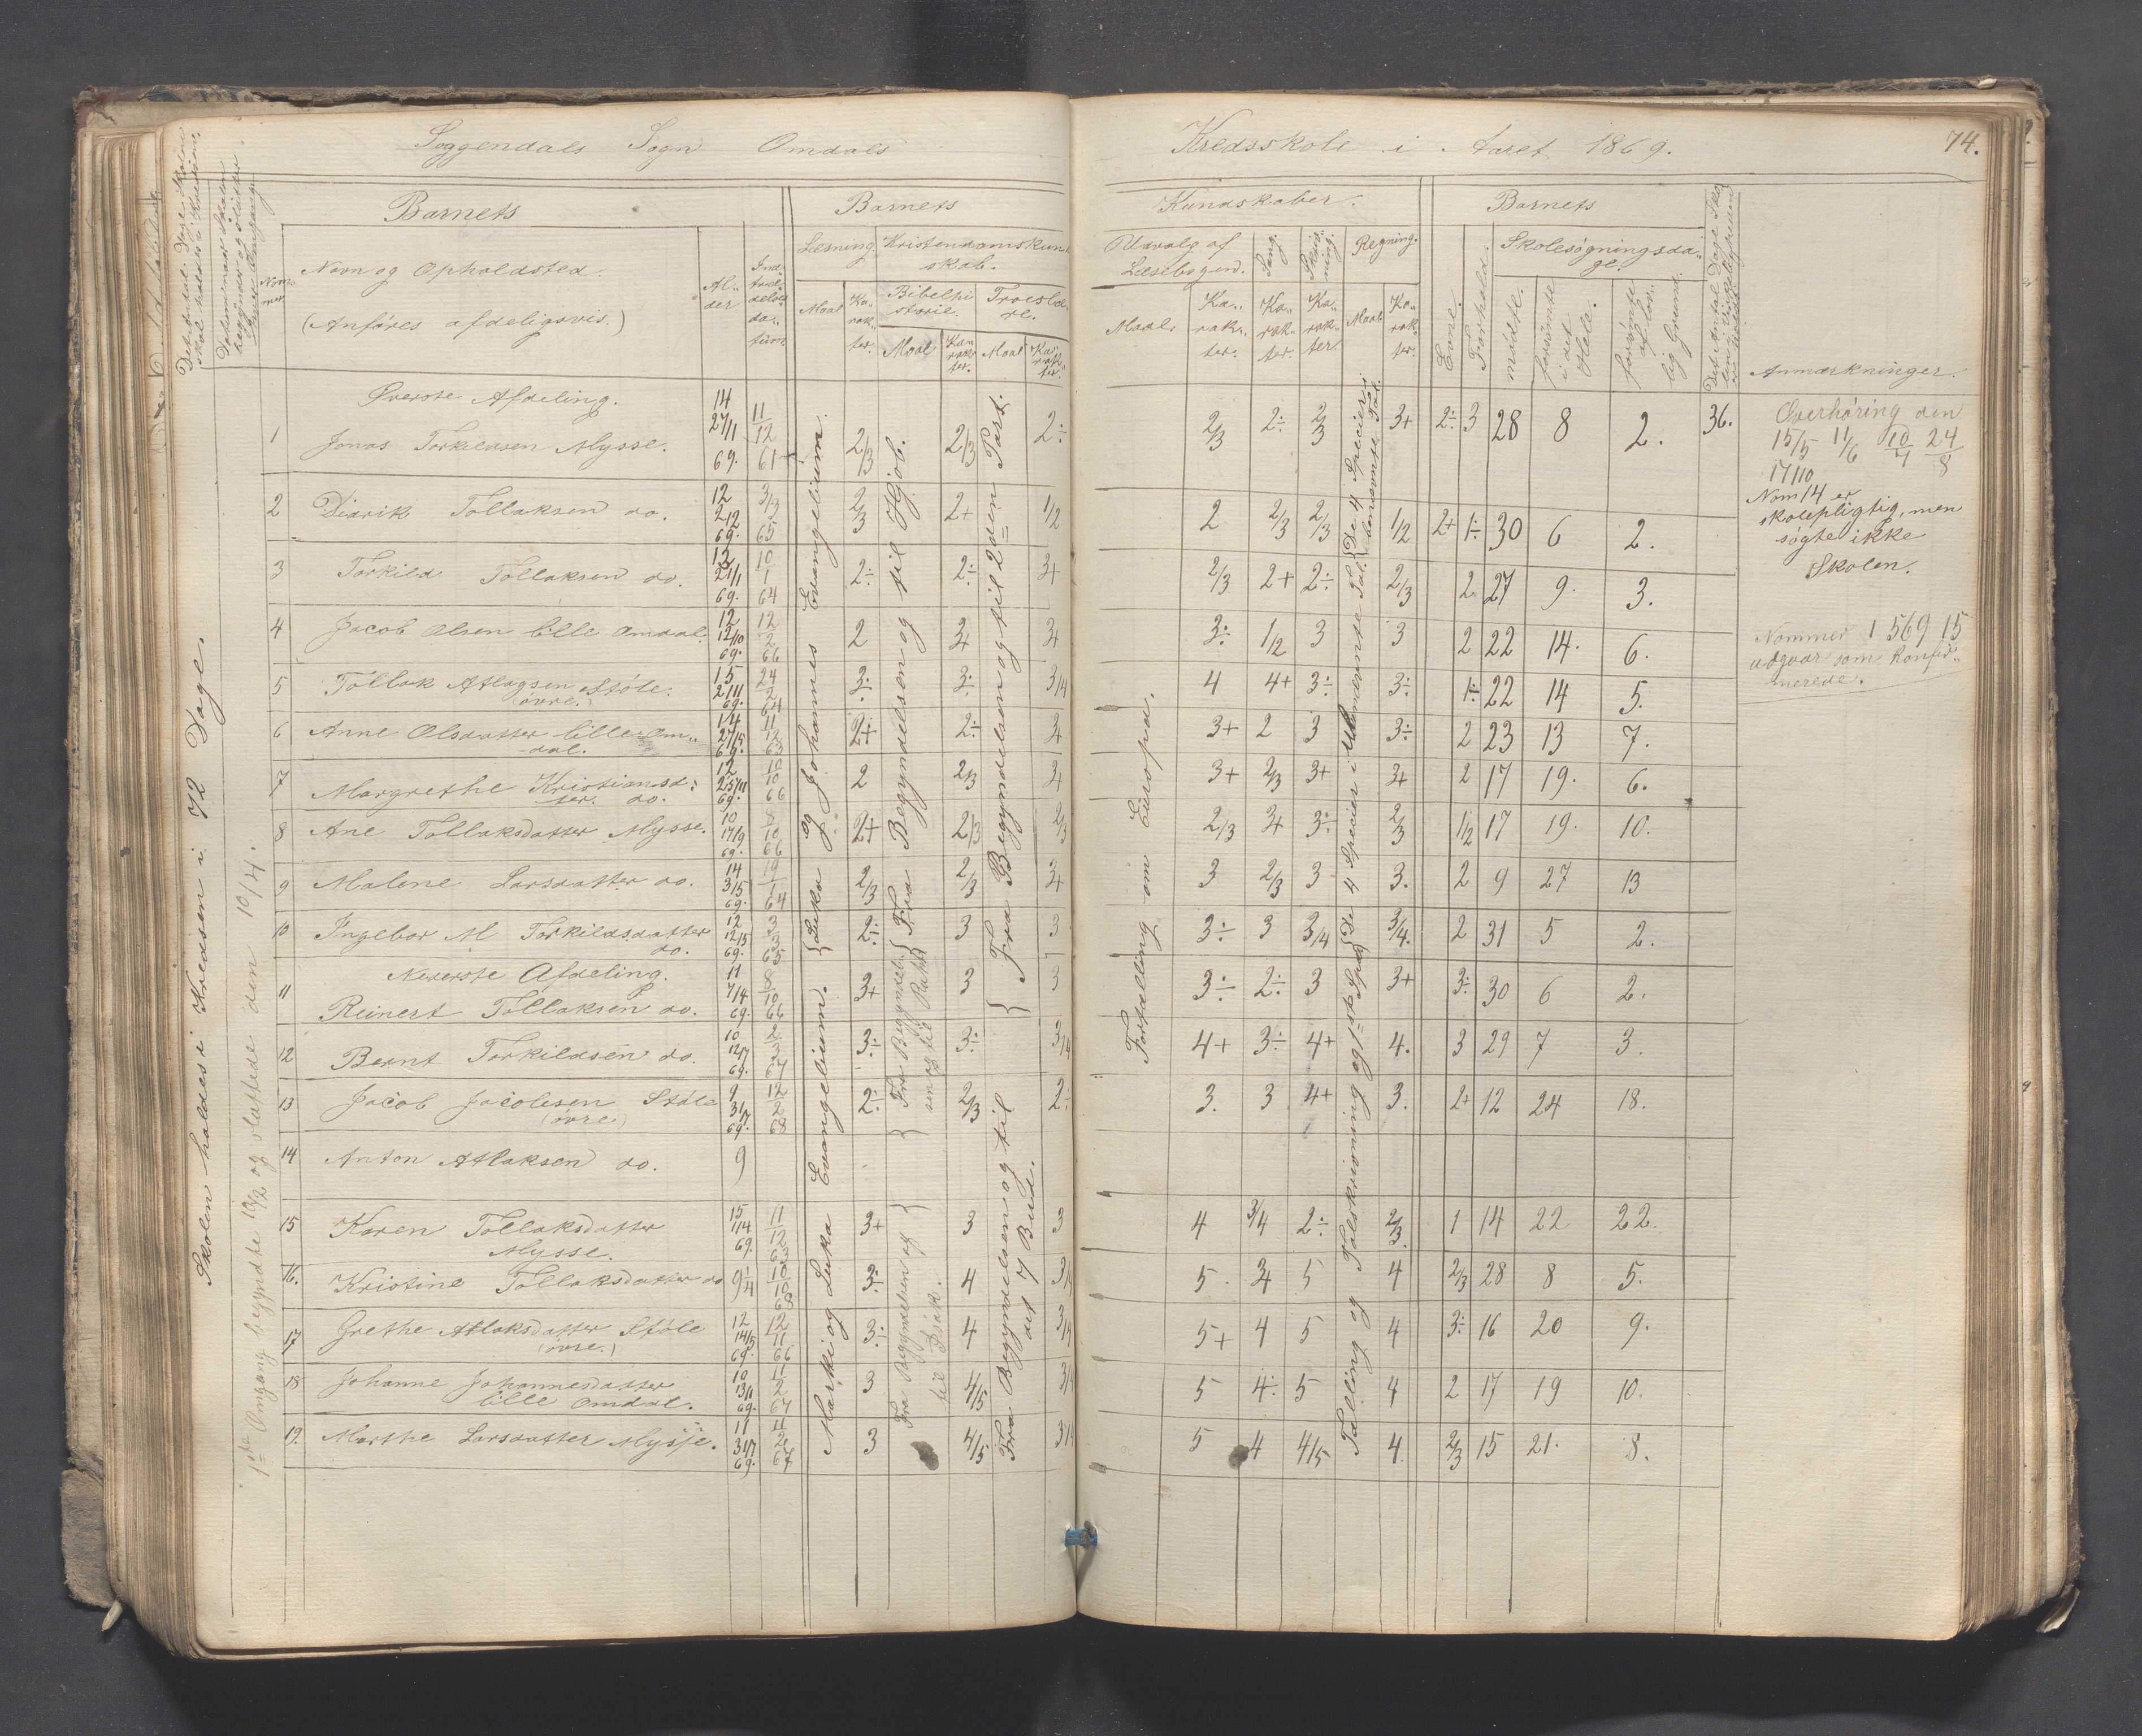 Soggendals Sogn Omdals
Kredsskole i Aaret 1869.
74.
Barnets
Barnets
Kundskaber.
Barnets
Nom-
mer
Navn og Opholdsted.
(Anføres afdeligsvis.)
Al-
der
Ind-
træd-
delses
da-
tum
Læsning.
Kristendomskund-
skab.
Maal
Ka-
rak-
ter.
Bibelhi
storie.
Maal
Ka-
rak-
ter.
Troeslæ-
re.
Maal
Ka-
rak-
ter.
Udvalg af
Læsebogen.
Maal.
Ka-
rak-
ter.
Sang.
Ka-
rak-
ter.
Skriv-
ning.
Ka-
rak-
ter.
Regning.
Maal
Ka-
rak-
ter.
Evne.
Forhold.
Skolesøgningsda-
ge.
mødte.
forsømte
i det
Hele.
forsømte
af lov-
lig Grund.
Anmærkninger.
Skolen holdes i Kredsen i 72 Dage.
1ste Omgang begyndte 10/2 og sluttede den 10/4.
Øverste Afdeling.
1 Jonas Torkildsen Mysse. 14 27/11 69. 11/12 61 2/3 2/3 2÷ 2/3 2÷ 2/3 3+ 2÷ 3 28 8 2. 36.
2 Didrik Tollaksen do. 12 2/12 69. 3/3 65 2/3 2+ 1/2 2 2/3 2/3 1/2 2+ 1÷ 30 6 2.
3 Torkild Tollaksen do. 13 21/1 69. 10/1 64 2÷ 2÷ 3+ 2/3 2+ 2÷ 2/3 2 27 9. 3.
4 Jacob Olsen lille Omdal. 12 12/10 69. 12/2 66 2 3+ 3+ 3÷ 1/2 3 3 2 22 14. 6.
5 Tollak Atlagsen Støle. 15 21/1 69. 24/2 64 3÷ 3÷ 3/4 4 4+ 3÷ 3÷ 1÷ 22 14 5.
(øvre.)
6 Anne Olsdatter lille Om- 14 27/5 69. 11/12 63 2+ 2÷ 3+ 3+ 2 3 3÷ 2 23 13 7.
dal.
7 Margrethe Kristiansd: 12 25/11 69. 10/10 66 2 2/3 3+ 3+ 2/3 3+ 3+ 2 17 19. 6.
ter. do.
8 Ane Tollaksdatter Mysse. 10 17/9 69. 8/10 66 2+ 2/3 2/3 2/3 3+ 3÷ 2/3 1/2 17 19. 10.
9 Malene Larsdatter do. 14 3/5 69. 19/1 64 2/3 2/3 3+ 3 2/3 3 3. 2 9 27 13
10 Ingebor M Torkildsdatter 12 12/5 69. 3/3 65 2÷ 3 3 3÷ 3 3/4 3/4. 2 31 5 2.
do.
Nederste Afdeling.
11 Reinert Tollaksen do. 11 7/4 69. 8/10 66 3+ 3 3 3÷ 2÷ 3 3+ 3÷ 30 6 2.
12 Bernt Torkildsen do. 10 12/7 69. 2/3 67 3÷ 3÷ 3/4 4+ 3÷ 4+ 4. 3 29 7 3.
13 Jacob Jacobsen Støle 9 31/7 69. 12/2 68 2÷ 2/3 2÷ 3. 3 4+ 3. 2+ 12 24 18.
(øvre)
14 Anton Atlaksen do. 9
15 Karen Tollaksdatter 15 1/4 69. 11/12 63 3+ 3 3 4 3/4 2÷ 2/3. 1 14 22 22.
Mysse.
16. Kristine Tollaksdatter do 9 1/4 10/10 68 3÷ 4 3/4 5. 3+ 5 4 2/3 28 8 5.
17 Grethe Atlaksdatter Støle 12 14/5 69. 12/11 66 3÷ 4 3/4 5+ 4 5 4 3÷ 16 20 9.
(øvre.)
18 Johanne Johannesdatter 10 13/11 69. 11/2 67 3 4/5 3/4 5 4÷ 5 4 2 17 19 10.
lille Omdal.
19. Marthe Larsdatter Mysse. 11 31/7 69. 11/2 67 3 4/5 3/4 5 4 4/5 4 2/3 15 21. 8.
Luka og Johannes Evangelium.
Marki og Luka Evangelium.
Fra Begyndelsen og til Hjob.
Fra Begyndel-
sen og til Ruth
Fra Begyndelsen af
til Isak.
Fra Begyndelsen og til 2den Part.
Fra Begyndelsen og til
det 7 Bud.
Fortælling om Europa.
De 4 Specier i
benævnte Tal.
De 4 Specier i ubenævnte Tal.
Tælling og Talskrivning og 1ste Spec.
Overhøring den
15/5 11/6 10/7 24/8
17/10
Nom 14 er
skolepligtig, men
søgte ikke
Skolen.
Nommer 1 5 6 9 15
udgaar som konfir-
merede.